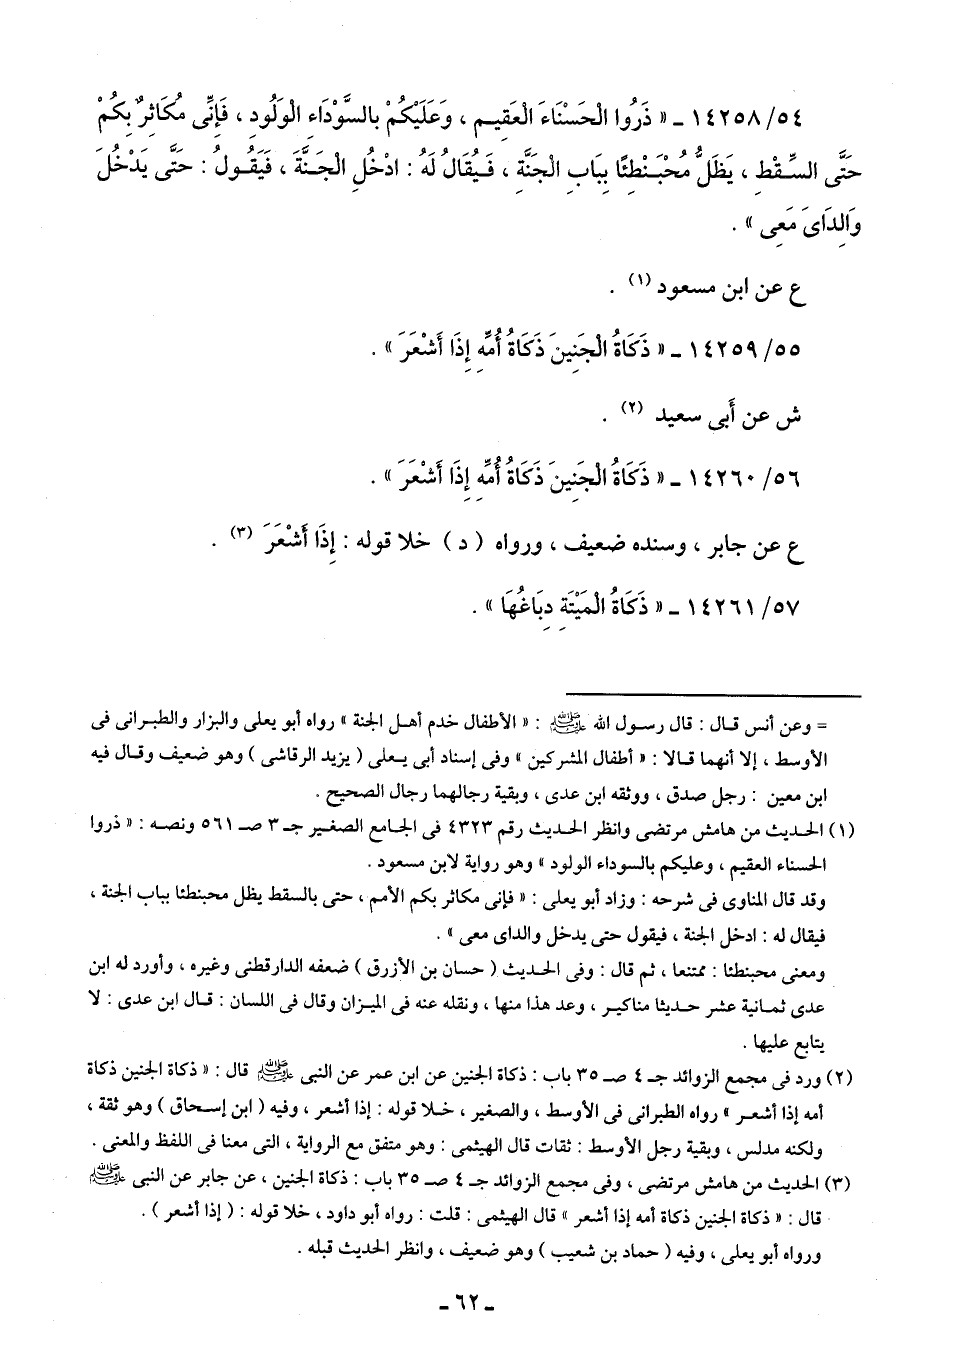 ١٤٢٥٨/٥٤ ـ « ذَرُوا الْحَسْنَاءَ الْعَقِيمِ ، وَعَلَيْكُمْ بِالسَّوْدَاءِ الْوَلُودِ ، فَإِنِّى مُكَاثِرٌ بِكُمْ
حَتَّى السِّقْطِ ، يَظَلُّ مُحْبَنْطِئًا بِبَابِ الْجَنَّةِ ، فَيُقَالُ لَهُ : ادْخُلِ الْجَنَّةَ ، فَيَقُولُ : حَتَّى يَدْخُلَ
وَالِدَاىَ مَعِى » .
ع عن ابن مسعود (١) .
١٤٢٥٩/٥٥ ـ « ذَكَاةُ الْجَنِينَ ذَكَاةُ أُمِّهِ إِذَا أَشْعَرَ » .
ش عن أَبى سعيد (٢) .
١٤٢٦٠/٥٦ ـ « ذَكَاةُ الْجَنِينَ ذَكَاةُ أُمِّهِ إِذَا أَشْعَرَ » .
ع عن جابر ، وسنده ضعيف ، ورواه ( د ) خلا قوله : إِذَا أَشْعَرَ (٣) .
١٤٢٦١/٥٧ ـ « ذَكَاةُ الْمَيْتَةِ دِبَاغُهَا » .
= وعن أنس قال : قال رسول الله ﷺ : « الأطفال خدم أهل الجنة » رواه أبو يعلى والبزار والطبرانى فى
الأوسط ، إلا أنهما قالا : « أطفال المشركين » وفى إسناد أبى يعلى ( يزيد الرقاشى ) وهو ضعيف وقال فيه
ابن معين : رجل صدق ، ووثقه ابن عدى ، وبقية رجالهما رجال الصحيح .
(١) الحديث من هامش مرتضى وانظر الحديث رقم ٤٣٢٣ فى الجامع الصغير جـ ٣ صـ ٥٦١ ونصه : « ذروا
الحسناء العقيم ، وعليكم بالسوداء الولود » وهو رواية لابن مسعود .
وقد قال المناوى فى شرحه : وزاد أبو يعلى : « فإنى مكاثر بكم الأمم ، حتى بالسقط يظل محبنطئا بباب الجنة ،
فيقال له : ادخل الجنة ، فيقول حتى يدخل والداى معى » .
ومعنى محبنطئا : ممتنعا ، ثم قال : وفى الحديث ( حسان بن الأزرق ) ضعفه الدارقطنى وغيره ، وأورد له ابن
عدى ثمانية عشر حديثا مناكير ، وعد هذا منها ، ونقله عنه فى الميزان وقال فى اللسان : قال ابن عدى : لا
يتابع عليها .
(٢) ورد فى مجمع الزوائد جـ ٤ صـ ٣٥ باب : ذكاة الجنين عن ابن عمر عن النبى ﷺ قال : « ذكاة الجنين ذكاة
أمه إذا أشعر » رواه الطبرانى فى الأوسط ، والصغير ، خلا قوله : إذا أشعر ، وفيه ( ابن إسحاق ) وهو ثقة ،
ولكنه مدلس ، وبقية رجل الأوسط : ثقات قال الهيثمى : وهو متفق مع الرواية ، التى معنا فى اللفظ والمعنى .
(٣) الحديث من هامش مرتضى ، وفى مجمع الزوائد جـ ٤ صـ ٣٥ باب : ذكاة الجنين ، عن جابر عن النبى ﷺ
قال : « ذكاة الجنين ذكاة أمه إذا أشعر » قال الهيثمى : قلت : رواه أبو داود ، خلا قوله : ( إذا أشعر ) .
ورواه أبو يعلى ، وفيه ( حماد بن شعيب ) وهو ضعيف ، وانظر الحديث قبله .
ـ ٦٢ ـ